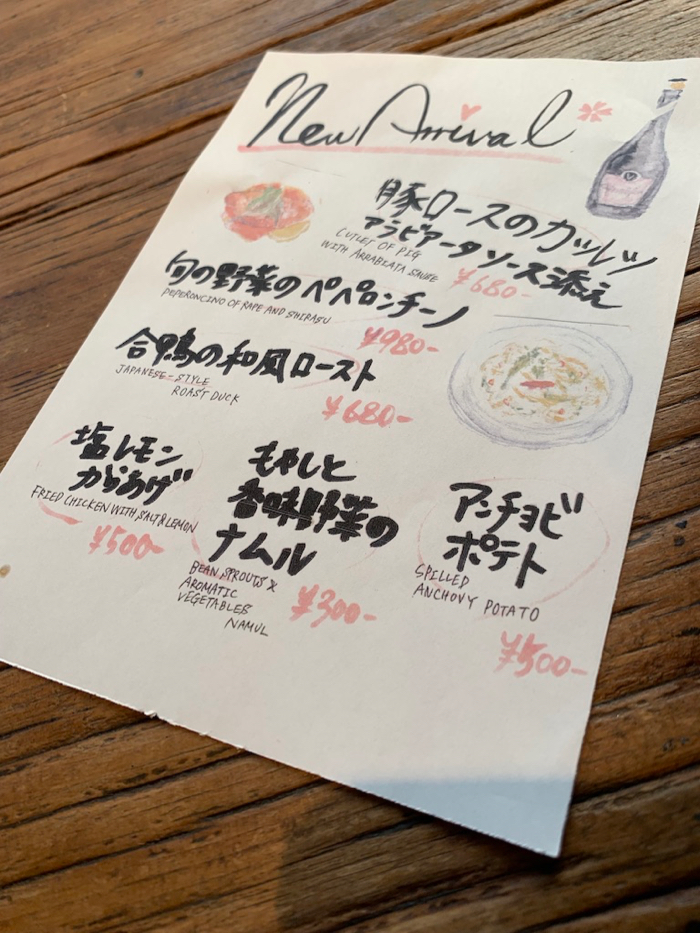 New Arrival
豚ロースのカツレツ
アラビアータソース添え
CUTLET OF PIG
WITH ARRABIATA SAUSE
¥680-
旬の野菜のペペロンチーノ
PEPERONCINO OF RAPE AND SHIRASU
¥980-
合鴨の和風ロースト
JAPANESE-STYLE
ROAST DUCK
¥680-
塩レモン
からあげ
FRIED CHICKEN WITH SALT&LEMON
¥500-
もやしと
香味野菜の
ナムル
BEAN SPROUTS X
AROMATIC
VEGETABLES
NAMUL
¥300-
アンチョビ
ポテト
SPILLED
ANCHOVY POTATO
¥500-